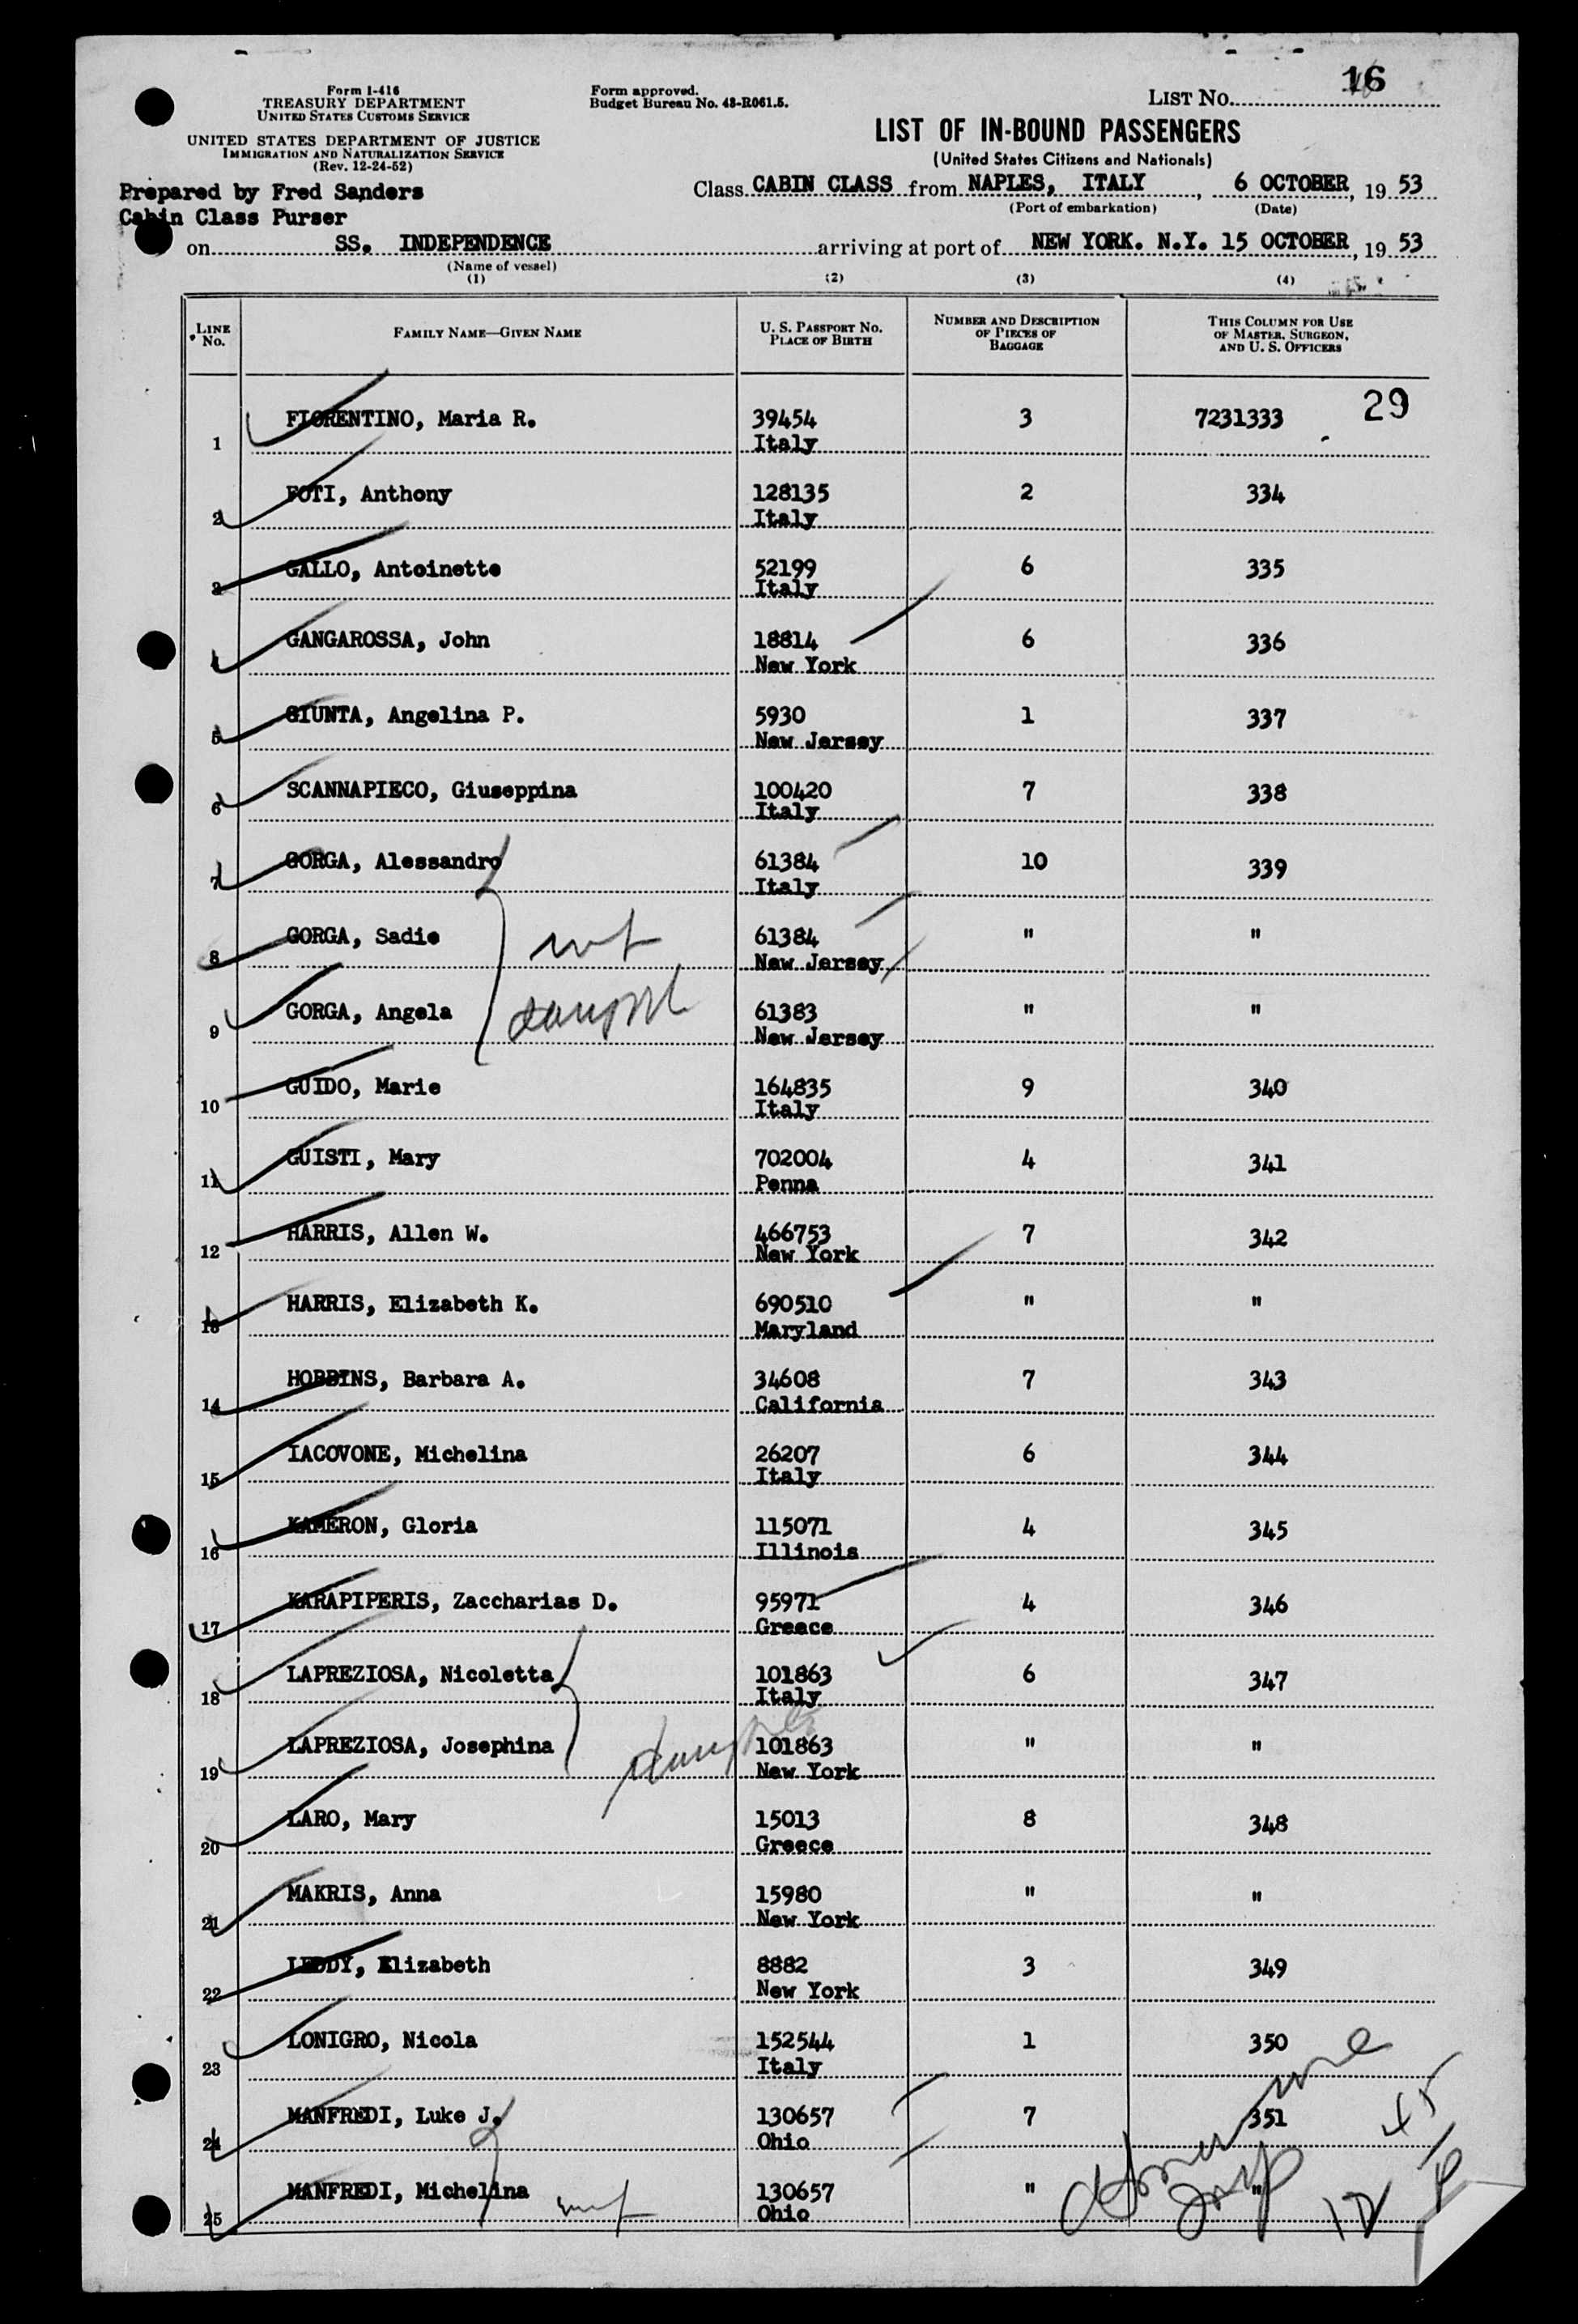 Form I-416
TREASURY DEPARTMENT
UNITED STATES CUSTOMS SERVICE
UNITED STATES DEPARTMENT OF JUSTICE
IMMIGRATION AND NATURALIZATION SERVICE
(Rev. 12-24-52)
Form approved.
Budget Bureau No. 43-R061.5.
LIST No. 16
LIST OF IN-BOUND PASSENGERS
(United States Citizens and Nationals)
Prepared by Fred Sanders
Cabin Class Purser
Class CABIN CLASS from NAPLES, ITALY, 6 OCTOBER, 19 53
(Port of embarkation) (Date)
on SS. INDEPENDENCE arriving at port of NEW YORK. N.Y. 15 OCTOBER, 19 53
(Name of vessel)
(1) (2) (3) (4)
LINE No. FAMILY NAME—GIVEN NAME U. S. PASSPORT NO. PLACE OF BIRTH NUMBER AND DESCRIPTION OF PIECES OF BAGGAGE THIS COLUMN FOR USE OF MASTER, SURGEON, AND U. S. OFFICERS
29
1 FIORENTINO, Maria R. 39454 3 7231333
Italy
2 FOTI, Anthony 128135 2 334
Italy
3 GALLO, Antoinette 52199 6 335
Italy
4 GANGAROSSA, John 18814 6 336
New York
5 GIUNTA, Angelina P. 5930 1 337
New Jersey
6 SCANNAPIECO, Giuseppina 100420 7 338
Italy
7 GORGA, Alessandro 61384 10 339
Italy
8 GORGA, Sadie 61384 " "
New Jersey
9 GORGA, Angela 61383 " "
New Jersey
10 GUIDO, Marie 164835 9 340
Italy
11 GUISTI, Mary 702004 4 341
Penna
12 HARRIS, Allen W. 466753 7 342
New York
13 HARRIS, Elizabeth K. 690510 " "
Maryland
14 HOBBINS, Barbara A. 34608 7 343
California
15 IACOVONE, Michelina 26207 6 344
Italy
16 KAMERON, Gloria 115071 4 345
Illinois
17 KARAPIPERIS, Zaccharias D. 95971 4 346
Greece
18 LAPREZIOSA, Nicoletta 101863 6 347
Italy
19 LAPREZIOSA, Josephina 101863 " "
New York
20 LARO, Mary 15013 8 348
Greece
21 MAKRIS, Anna 15980 " "
New York
22 LEDDY, Elizabeth 8882 3 349
New York
23 LONIGRO, Nicola 152544 1 350
Italy
24 MANFREDI, Luke J. 130657 7 351
Ohio
25 MANFREDI, Michelina 130657 " "
Ohio